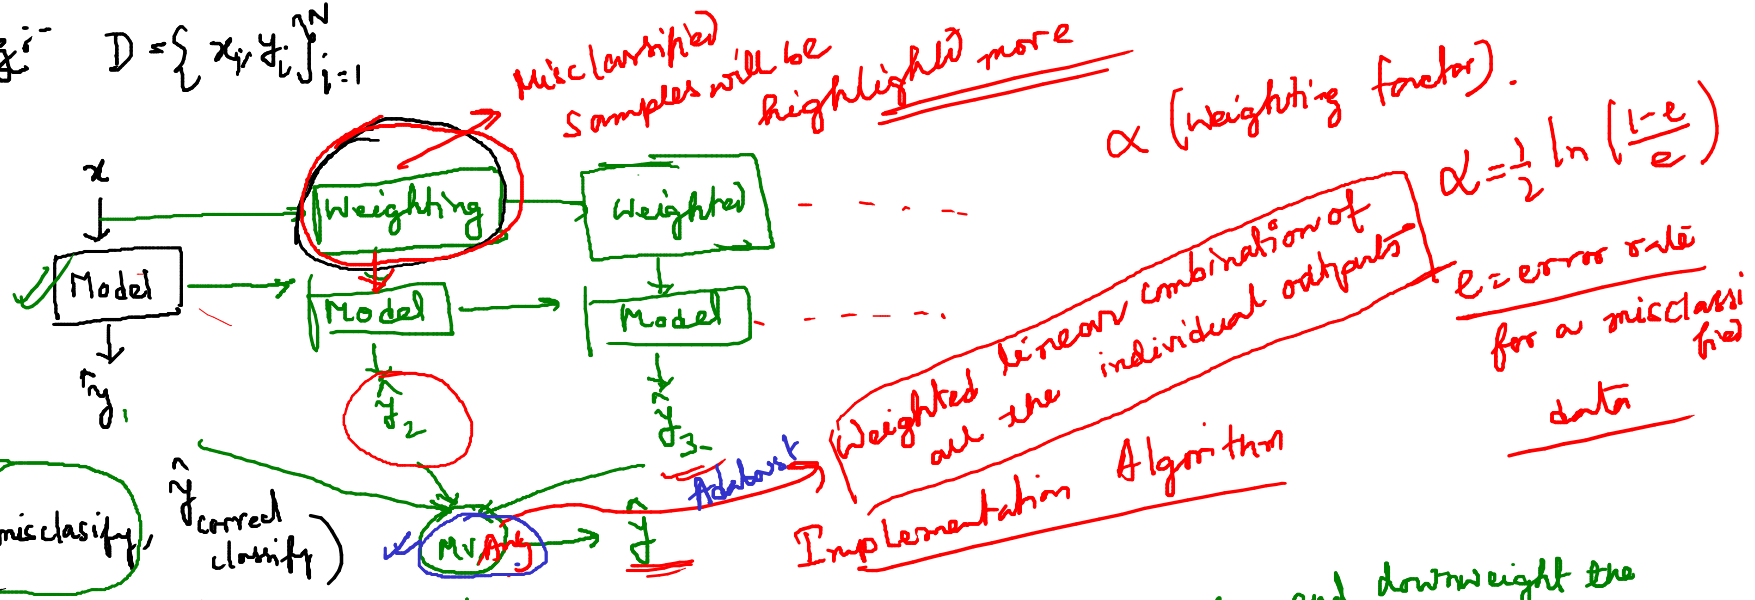 D = { xi, yi }ᴺi=1
Misclassified
samples will be
highlighted more
α (Weighting factor).
α = 1/2 ln (1-e/e)
e = error rate
for a misclassi
fied
data
x
Weighting
Weighted
Model
Model
Model
ŷ1
ŷ2
ŷ3
Weighted linear combination of
all the individual outputs
Adaboost
Implementation Algorithm
misclasify, ŷcorrect
classify)
MV Avg
ŷ
and downweight the